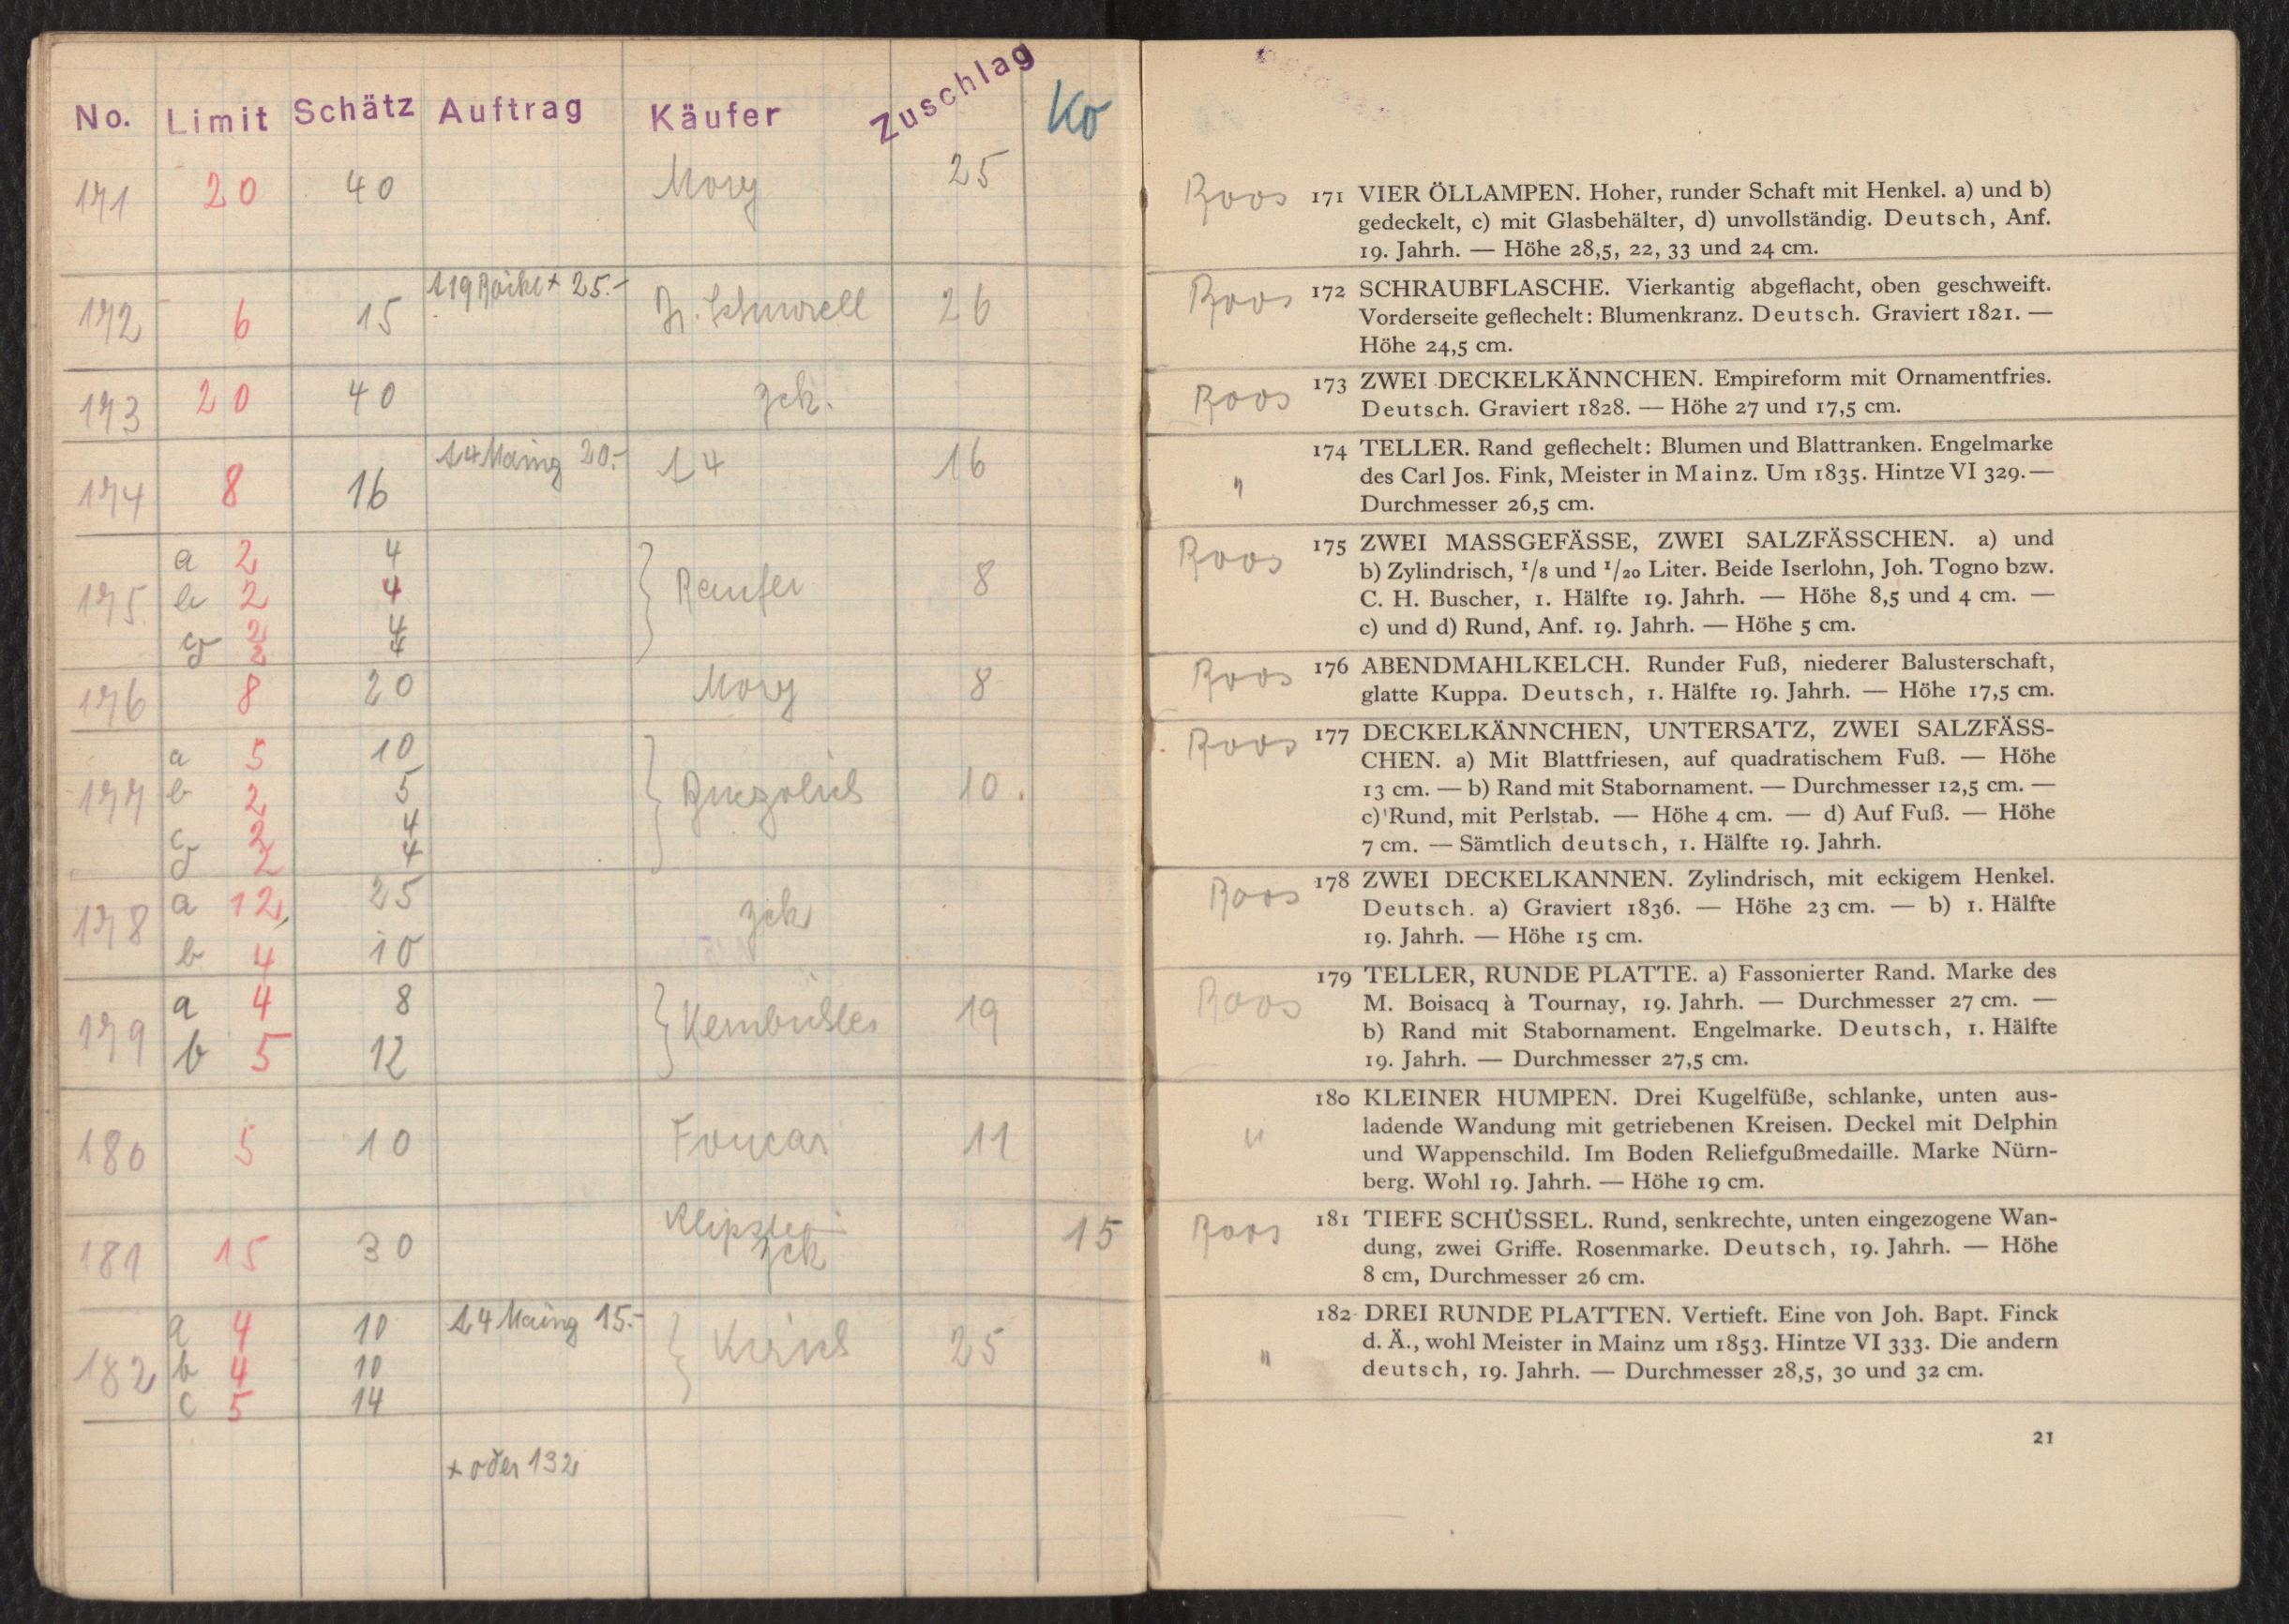 No. Limit Schätz Auftrag Käufer Zuschlag Ko
171 20 40 Mory 25
172 6 15 25.- 26
173 20 40 zck.
174 8 16 L4 Mainz 20.- L4 16
a 2 4
175 b 2 4 8
2 4
2 4
176 8 20 Mory 8
a 5 10
177 b 2 5 10.
c 2 4
d 2 4
178 a 12 25 zck
b 4 10
179 a 4 8 19
b 5 12
180 5 10 Foucar 11
Klipstein
181 15 30 zck 15
a 4 10 L4 Mainz 15.-
182 b 4 10 25
c 5 14
+ oder 132
Roos 171 VIER ÖLLAMPEN. Hoher, runder Schaft mit Henkel. a) und b)
gedeckelt, c) mit Glasbehälter, d) unvollständig. Deutsch, Anf.
19. Jahrh. — Höhe 28,5, 22, 33 und 24 cm.
Roos 172 SCHRAUBFLASCHE. Vierkantig abgeflacht, oben geschweift.
Vorderseite geflechelt: Blumenkranz. Deutsch. Graviert 1821. —
Höhe 24,5 cm.
Roos 173 ZWEI DECKELKÄNNCHEN. Empireform mit Ornamentfries.
Deutsch. Graviert 1828. — Höhe 27 und 17,5 cm.
174 TELLER. Rand geflechelt: Blumen und Blattranken. Engelmarke
" des Carl Jos. Fink, Meister in Mainz. Um 1835. Hintze VI 329. —
Durchmesser 26,5 cm.
Roos 175 ZWEI MASSGEFÄSSE, ZWEI SALZFÄSSCHEN. a) und
b) Zylindrisch, 1/8 und 1/20 Liter. Beide Iserlohn, Joh. Togno bzw.
C. H. Buscher, 1. Hälfte 19. Jahrh. — Höhe 8,5 und 4 cm. —
c) und d) Rund, Anf. 19. Jahrh. — Höhe 5 cm.
Roos 176 ABENDMAHLKELCH. Runder Fuß, niederer Balusterschaft,
glatte Kuppa. Deutsch, 1. Hälfte 19. Jahrh. — Höhe 17,5 cm.
Roos 177 DECKELKÄNNCHEN, UNTERSATZ, ZWEI SALZFÄSS-
CHEN. a) Mit Blattfriesen, auf quadratischem Fuß. — Höhe
13 cm. — b) Rand mit Stabornament. — Durchmesser 12,5 cm. —
c) Rund, mit Perlstab. — Höhe 4 cm. — d) Auf Fuß. — Höhe
7 cm. — Sämtlich deutsch, 1. Hälfte 19. Jahrh.
Roos 178 ZWEI DECKELKANNEN. Zylindrisch, mit eckigem Henkel.
Deutsch. a) Graviert 1836. — Höhe 23 cm. — b) 1. Hälfte
19. Jahrh. — Höhe 15 cm.
179 TELLER, RUNDE PLATTE. a) Fassonierter Rand. Marke des
Roos M. Boisacq à Tournay, 19. Jahrh. — Durchmesser 27 cm. —
b) Rand mit Stabornament. Engelmarke. Deutsch, 1. Hälfte
19. Jahrh. — Durchmesser 27,5 cm.
180 KLEINER HUMPEN. Drei Kugelfüße, schlanke, unten aus-
" ladende Wandung mit getriebenen Kreisen. Deckel mit Delphin
und Wappenschild. Im Boden Reliefgußmedaille. Marke Nürn-
berg. Wohl 19. Jahrh. — Höhe 19 cm.
Roos 181 TIEFE SCHÜSSEL. Rund, senkrechte, unten eingezogene Wan-
dung, zwei Griffe. Rosenmarke. Deutsch, 19. Jahrh. — Höhe
8 cm, Durchmesser 26 cm.
182 DREI RUNDE PLATTEN. Vertieft. Eine von Joh. Bapt. Finck
" d. Ä., wohl Meister in Mainz um 1853. Hintze VI 333. Die andern
deutsch, 19. Jahrh. — Durchmesser 28,5, 30 und 32 cm.
21